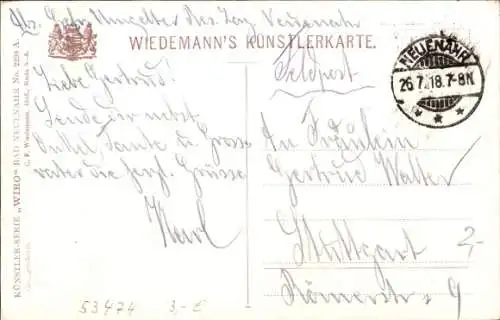 Abs. Gefr. Umgelter Res. Laz. Neuenahr
WIEDEMANN'S KÜNSTLERKARTE.
Feldpost
NEUENAHR
26.7.18.7-8N.
Liebe Gertrud!
Sende dir nebst
Onkel Tante u. Gross-
vater die herzl. Grüsse
Karl
An Fräulein
Gertrud Walter
Stuttgart
Römerstr. 9
2,-
KÜNSTLER-SERIE „WIRO“ BAD NEUENAHR No. 2293 A.
53474 3,- E